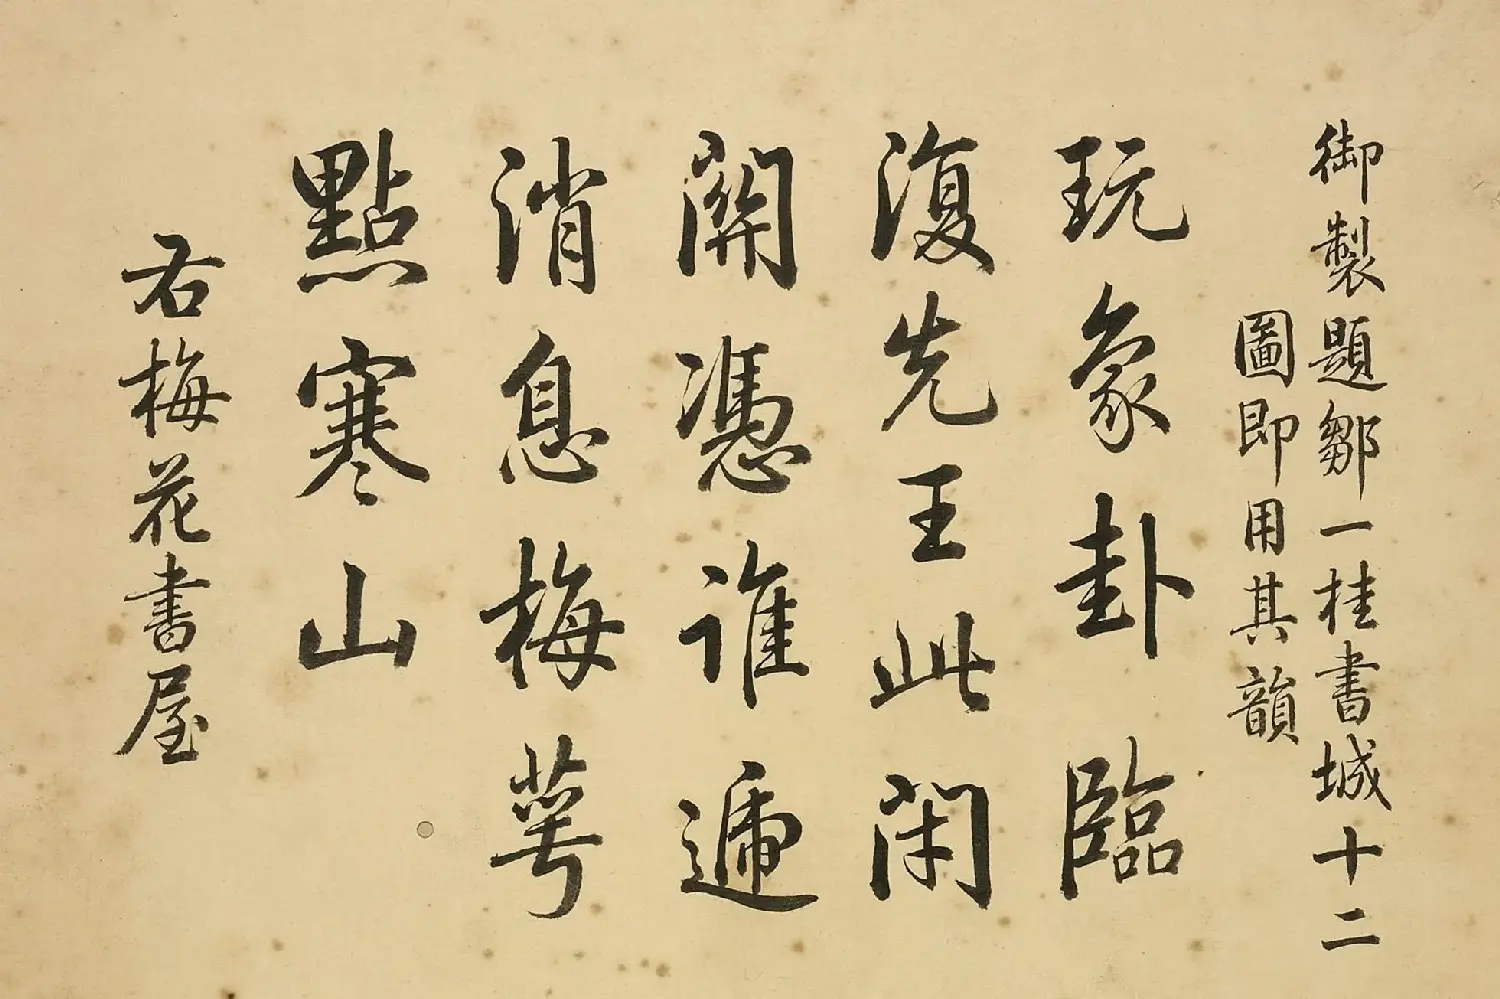 御製題鄒一桂書城十二
圖即用其韻
玩象卦臨
復先王此閑
關憑誰遞
消息梅萼
點寒山
右梅花書屋